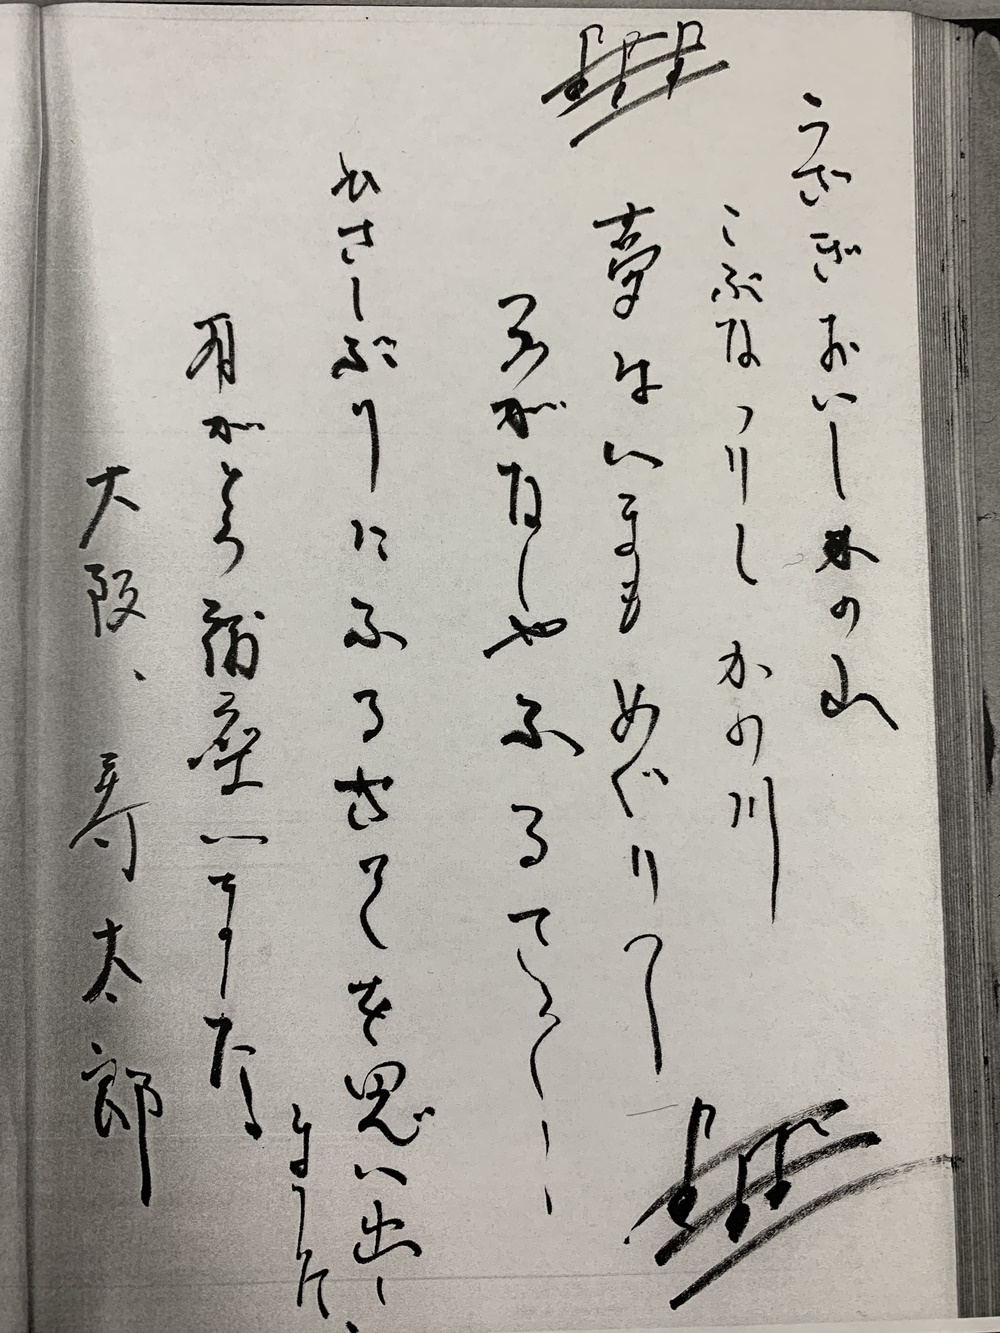 うさぎおいしかの山
こぶなつりし かの川
夢はいまも めぐりて
忘がたしや ふるさと
ひさしぶりにふるさとを思い出し
ました、
有がとう御座いました
大阪、寿太郎